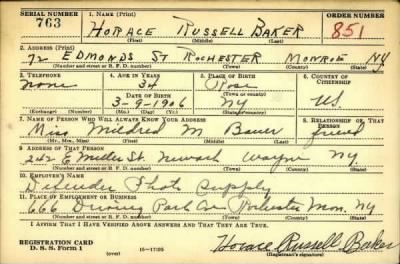 SERIAL NUMBER 1. NAME (Print) ORDER NUMBER
763 HORACE RUSSELL BAKER 851
(First) (Middle) (Last)
2. ADDRESS (Print)
72 EDMONDS ST ROCHESTER MONROE NY
(Number and street or R. F. D. number) (Town) (County) (State)
3. TELEPHONE 4. AGE IN YEARS 5. PLACE OF BIRTH 6. COUNTRY OF CITIZENSHIP
none 34 Rose
DATE OF BIRTH (Town or county)
3-9-1906 NY U.S.
(Exchange) (Number) (Mo.) (Day) (Yr.) (State or country)
7. NAME OF PERSON WHO WILL ALWAYS KNOW YOUR ADDRESS 8. RELATIONSHIP OF THAT PERSON
Miss Mildred M Bauer friend
(Mr., Mrs., Miss) (First) (Middle) (Last)
9. ADDRESS OF THAT PERSON
242 E Miller St. Newark Wayne NY
(Number and street or R. F. D. number) (Town) (County) (State)
10. EMPLOYER'S NAME
Defender Photo Supply
11. PLACE OF EMPLOYMENT OR BUSINESS
666 Driving Park Ave Rochester Mon. NY
(Number and street or R. F. D. number) (Town) (County) (State)
I AFFIRM THAT I HAVE VERIFIED ABOVE ANSWERS AND THAT THEY ARE TRUE.
REGISTRATION CARD
D. S. S. Form 1 (over) 16-17105 Horace Russell Baker
(Registrant's signature)